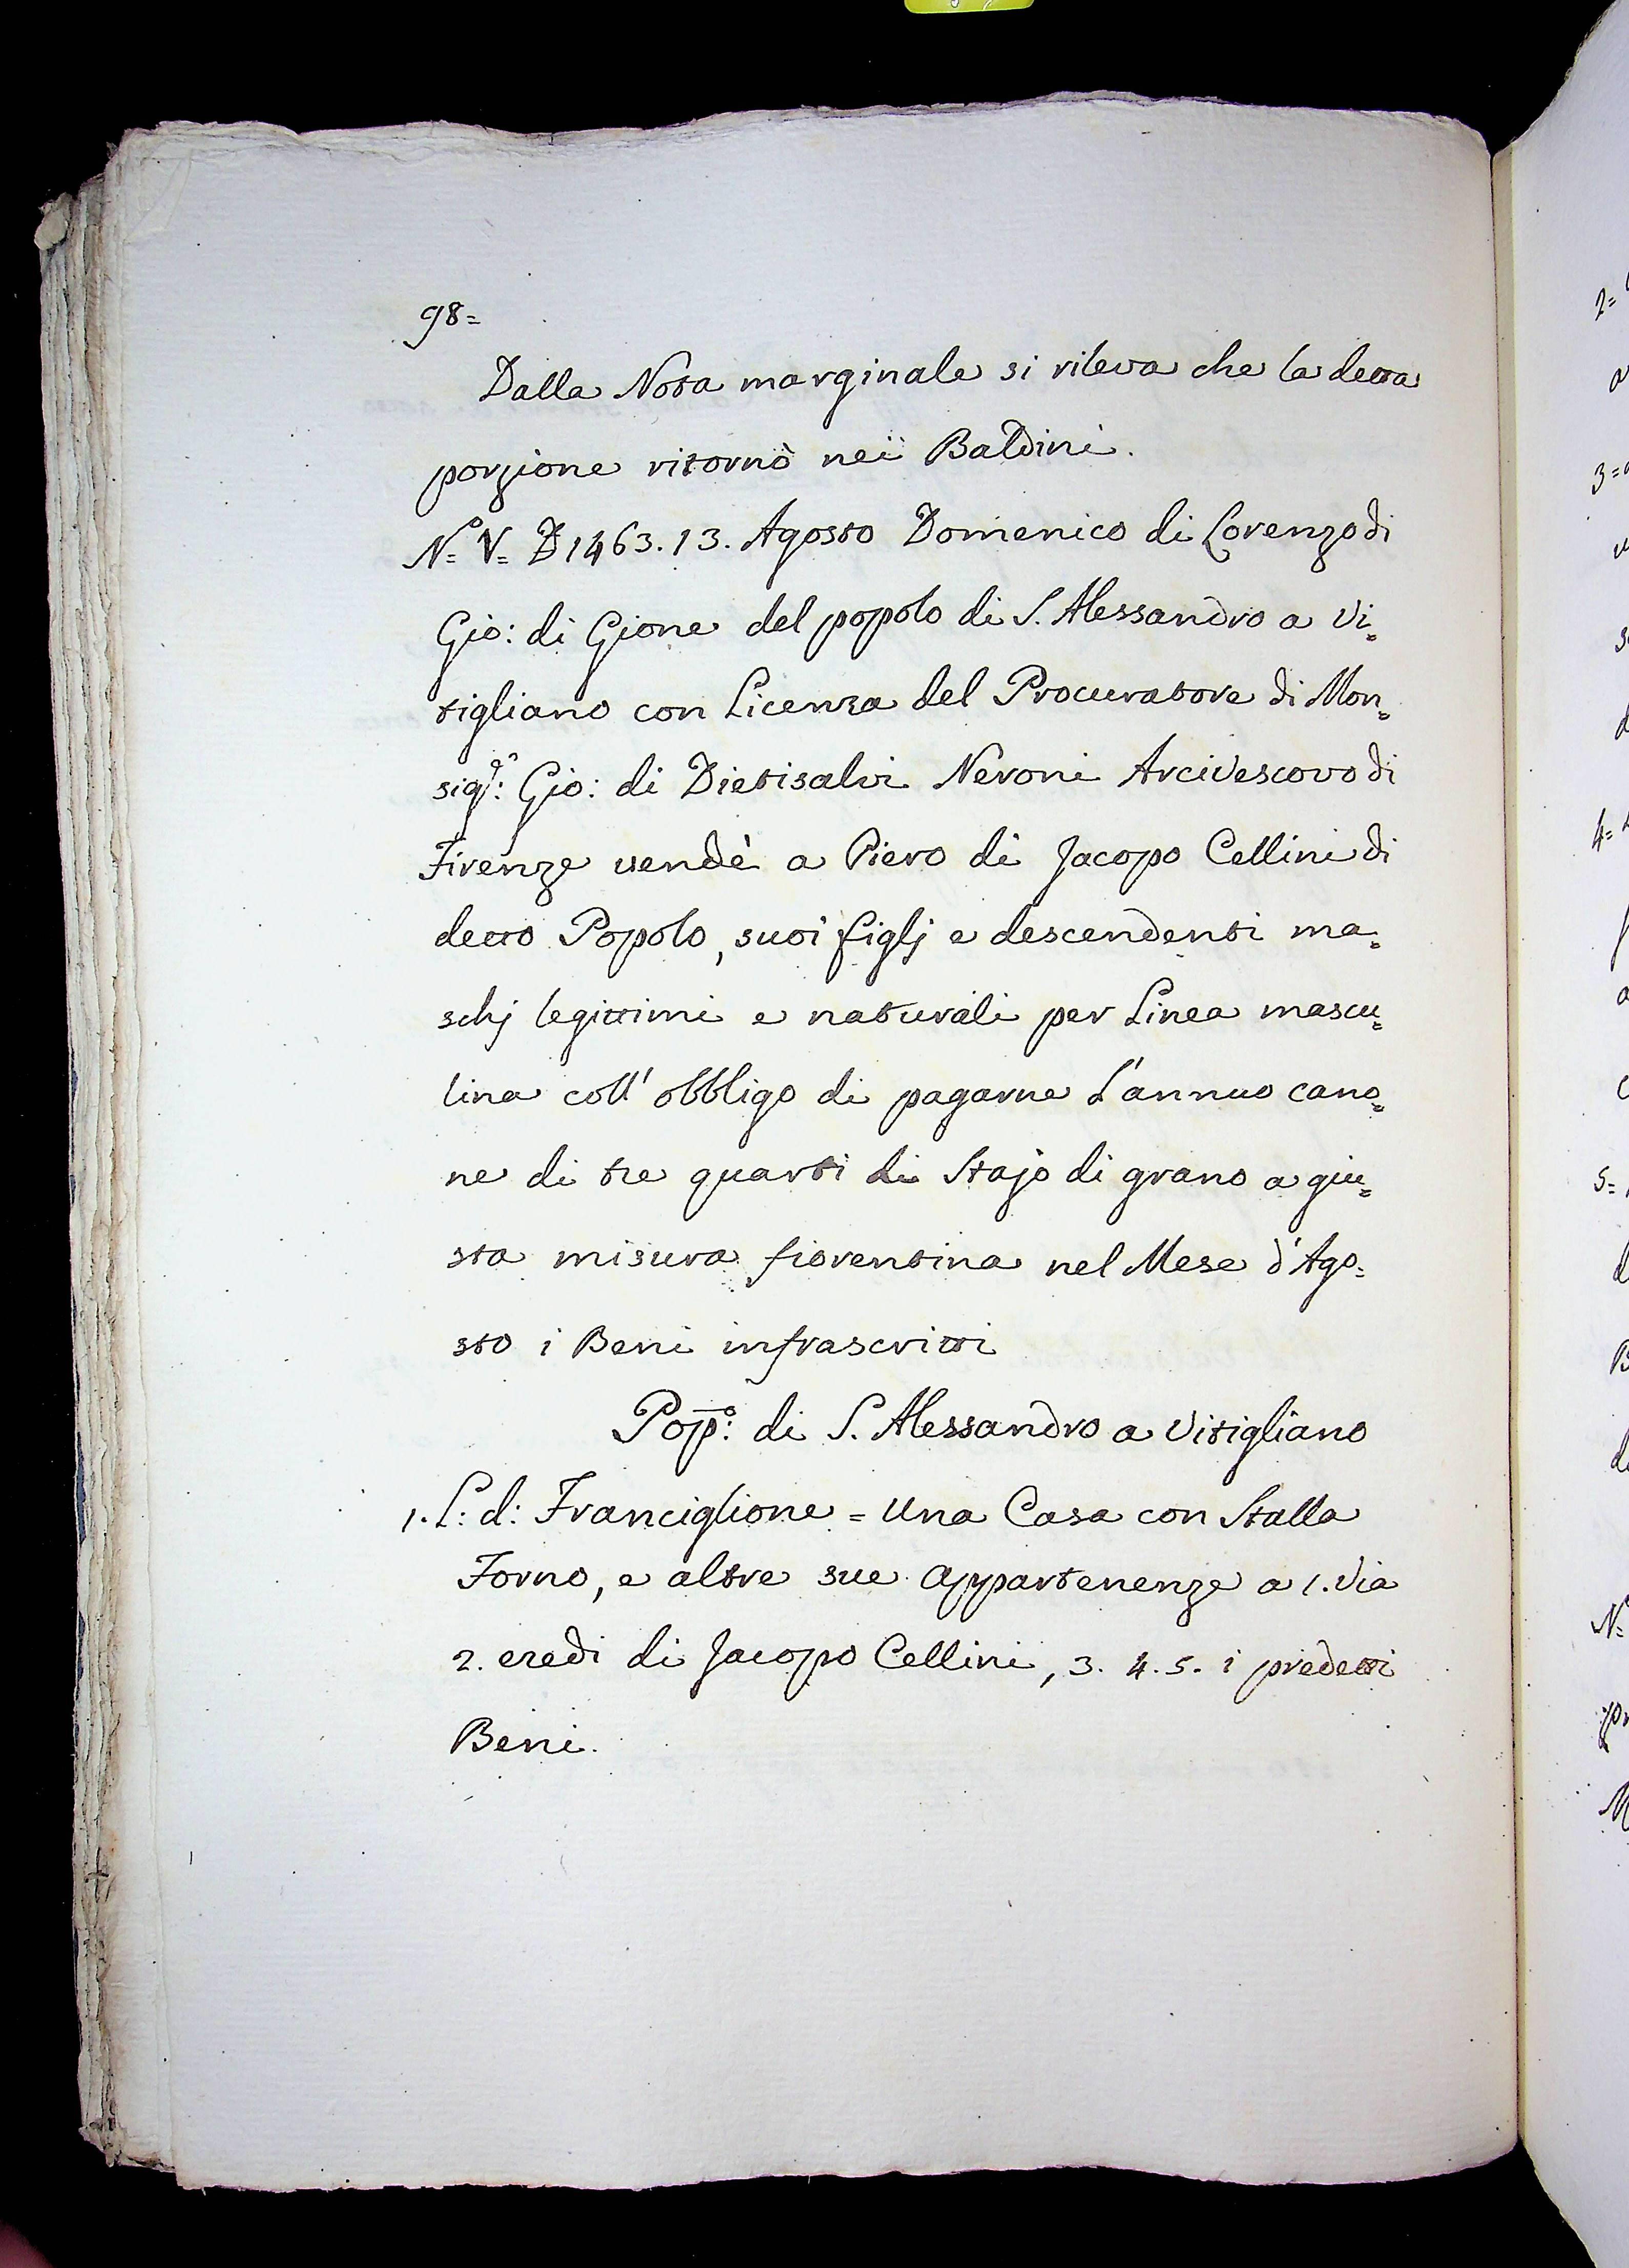 98=
Dalla Nota marginale si rileva che la detta
porzione ritornò nei Baldini.
N.º V. D 1463. 13. Agosto Domenico di Lorenzo di
Gio: di Gione del popolo di S. Alessandro a Vi=
tigliano con Licenza del Procuratore di Mon=
sig.re: Gio: di Dietisalvi Neroni Arcivescovo di
Firenze vendè a Piero di Jacopo Cellini di
detto Popolo, suoi figlj e descendenti ma=
schj legittimi e naturali per Linea mascu=
lina coll' obbligo di pagarne L'annuo cano=
ne di tre quarti di Stajo di grano a giu=
sta misura fiorentina nel Mese d'Ago=
sto i Beni infrascritti
Pop.º: di S. Alessandro a Vitigliano
1. L: d: Franciglione = Una Casa con Stalla
Forno, e altre sue Appartenenze a 1. Via
2. eredi di Jacopo Cellini, 3. 4. 5. i predetti
Beni.